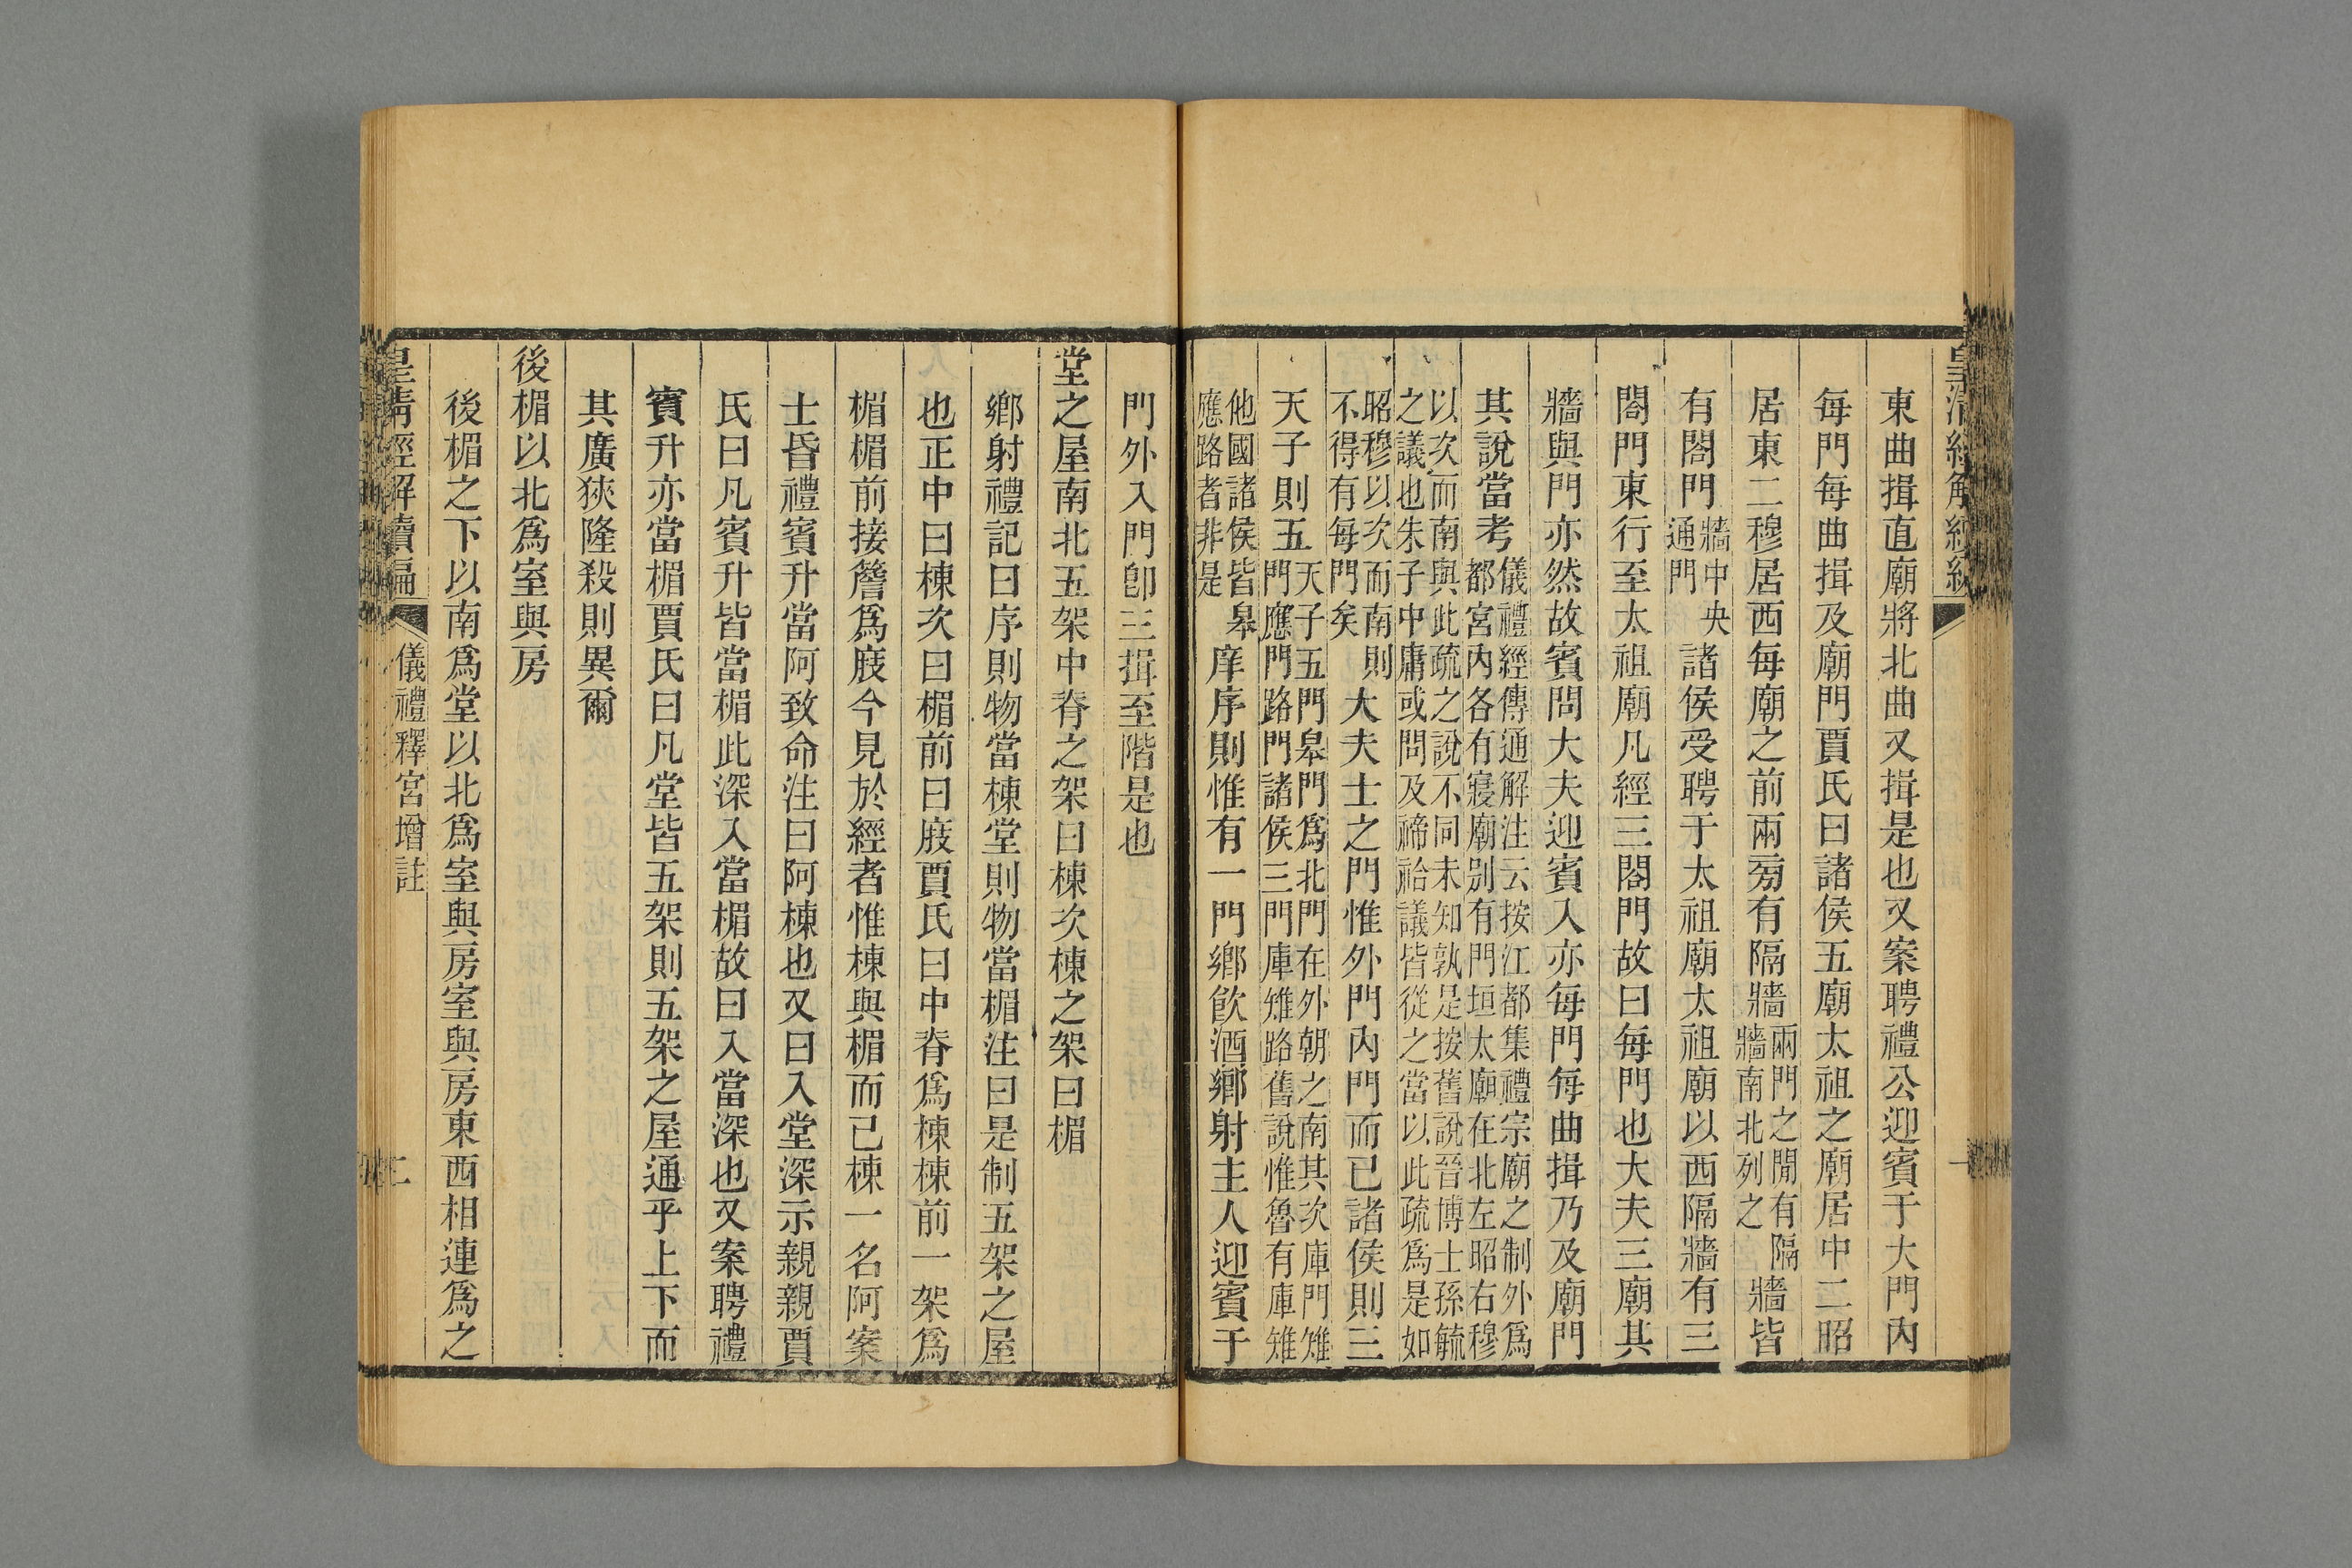 東曲揖直廟將北曲又揖是也又案聘禮公迎賓于大門內
每門每曲揖及廟門賈氏曰諸侯五廟太祖之廟居中二昭
居東二穆居西每廟之前兩旁有隔牆兩門之閒有隔牆南北列之牆皆
有閤門牆中央通門諸侯受聘于太祖廟太祖廟以西隔牆有三
閤門東行至太祖廟凡經三閤門故曰每門也大夫三廟其
牆與門亦然故賓問大夫迎賓入亦每門每曲揖乃及廟門
其說當考儀禮經傳通解注云按江都集禮宗廟之制外爲都宮內各有寢廟別有門垣太廟在北左昭右穆
以次而南與此疏之說不同未知孰是按舊說晉博士孫毓之議也朱子中庸或問及禘祫議皆從之當以此疏爲是如
昭穆以次而南則不得有每門矣大夫士之門惟外門內門而已諸侯則三
天子則五天子五門皋門爲北門在外朝之南其次庫門雉門應門路門諸侯三門庫雉路舊說惟魯有庫雉
他國諸侯皆皋應路者非是庠序則惟有一門鄉飲酒鄉射主人迎賓于
門外入門卽三揖至階是也
堂之屋南北五架中脊之架曰棟次棟之架曰楣
鄉射禮記曰序則物當棟堂則物當楣注曰是制五架之屋
也正中曰棟次曰楣前曰庪賈氏曰中脊爲棟棟前一架爲
楣楣前接簷爲庪今見於經者惟棟與楣而已棟一名阿案
士昏禮賓升當阿致命注曰阿棟也又曰入堂深示親親賈
氏曰凡賓升皆當楣此深入當楣故曰入當深也又案聘禮
賓升亦當楣賈氏曰凡堂皆五架則五架之屋通乎上下而
其廣狹隆殺則異爾
後楣以北爲室與房
後楣之下以南爲堂以北爲室與房室與房東西相連爲之
皇清經解續編 儀禮釋宮增註 二